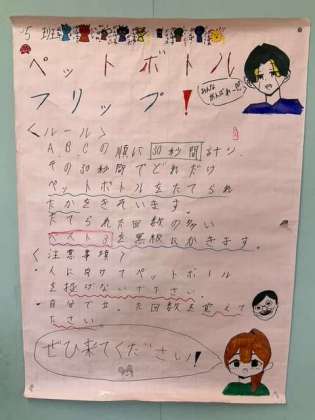 5班
ペットボトル
フリップ!
みんながんばれー!!
<ルール>
A,B,Cの順に30秒間計り、
その30秒間でどれだけ
ペットボトルをたてられ
たかをきそいます。
たてられた回数の多い
ベスト3を黒板にかきます。
<注意事項>
・人に向けてペットボトル
を投げないで下さい。
・自分で立った回数を覚えて
ださい。
ぜひ来てください!